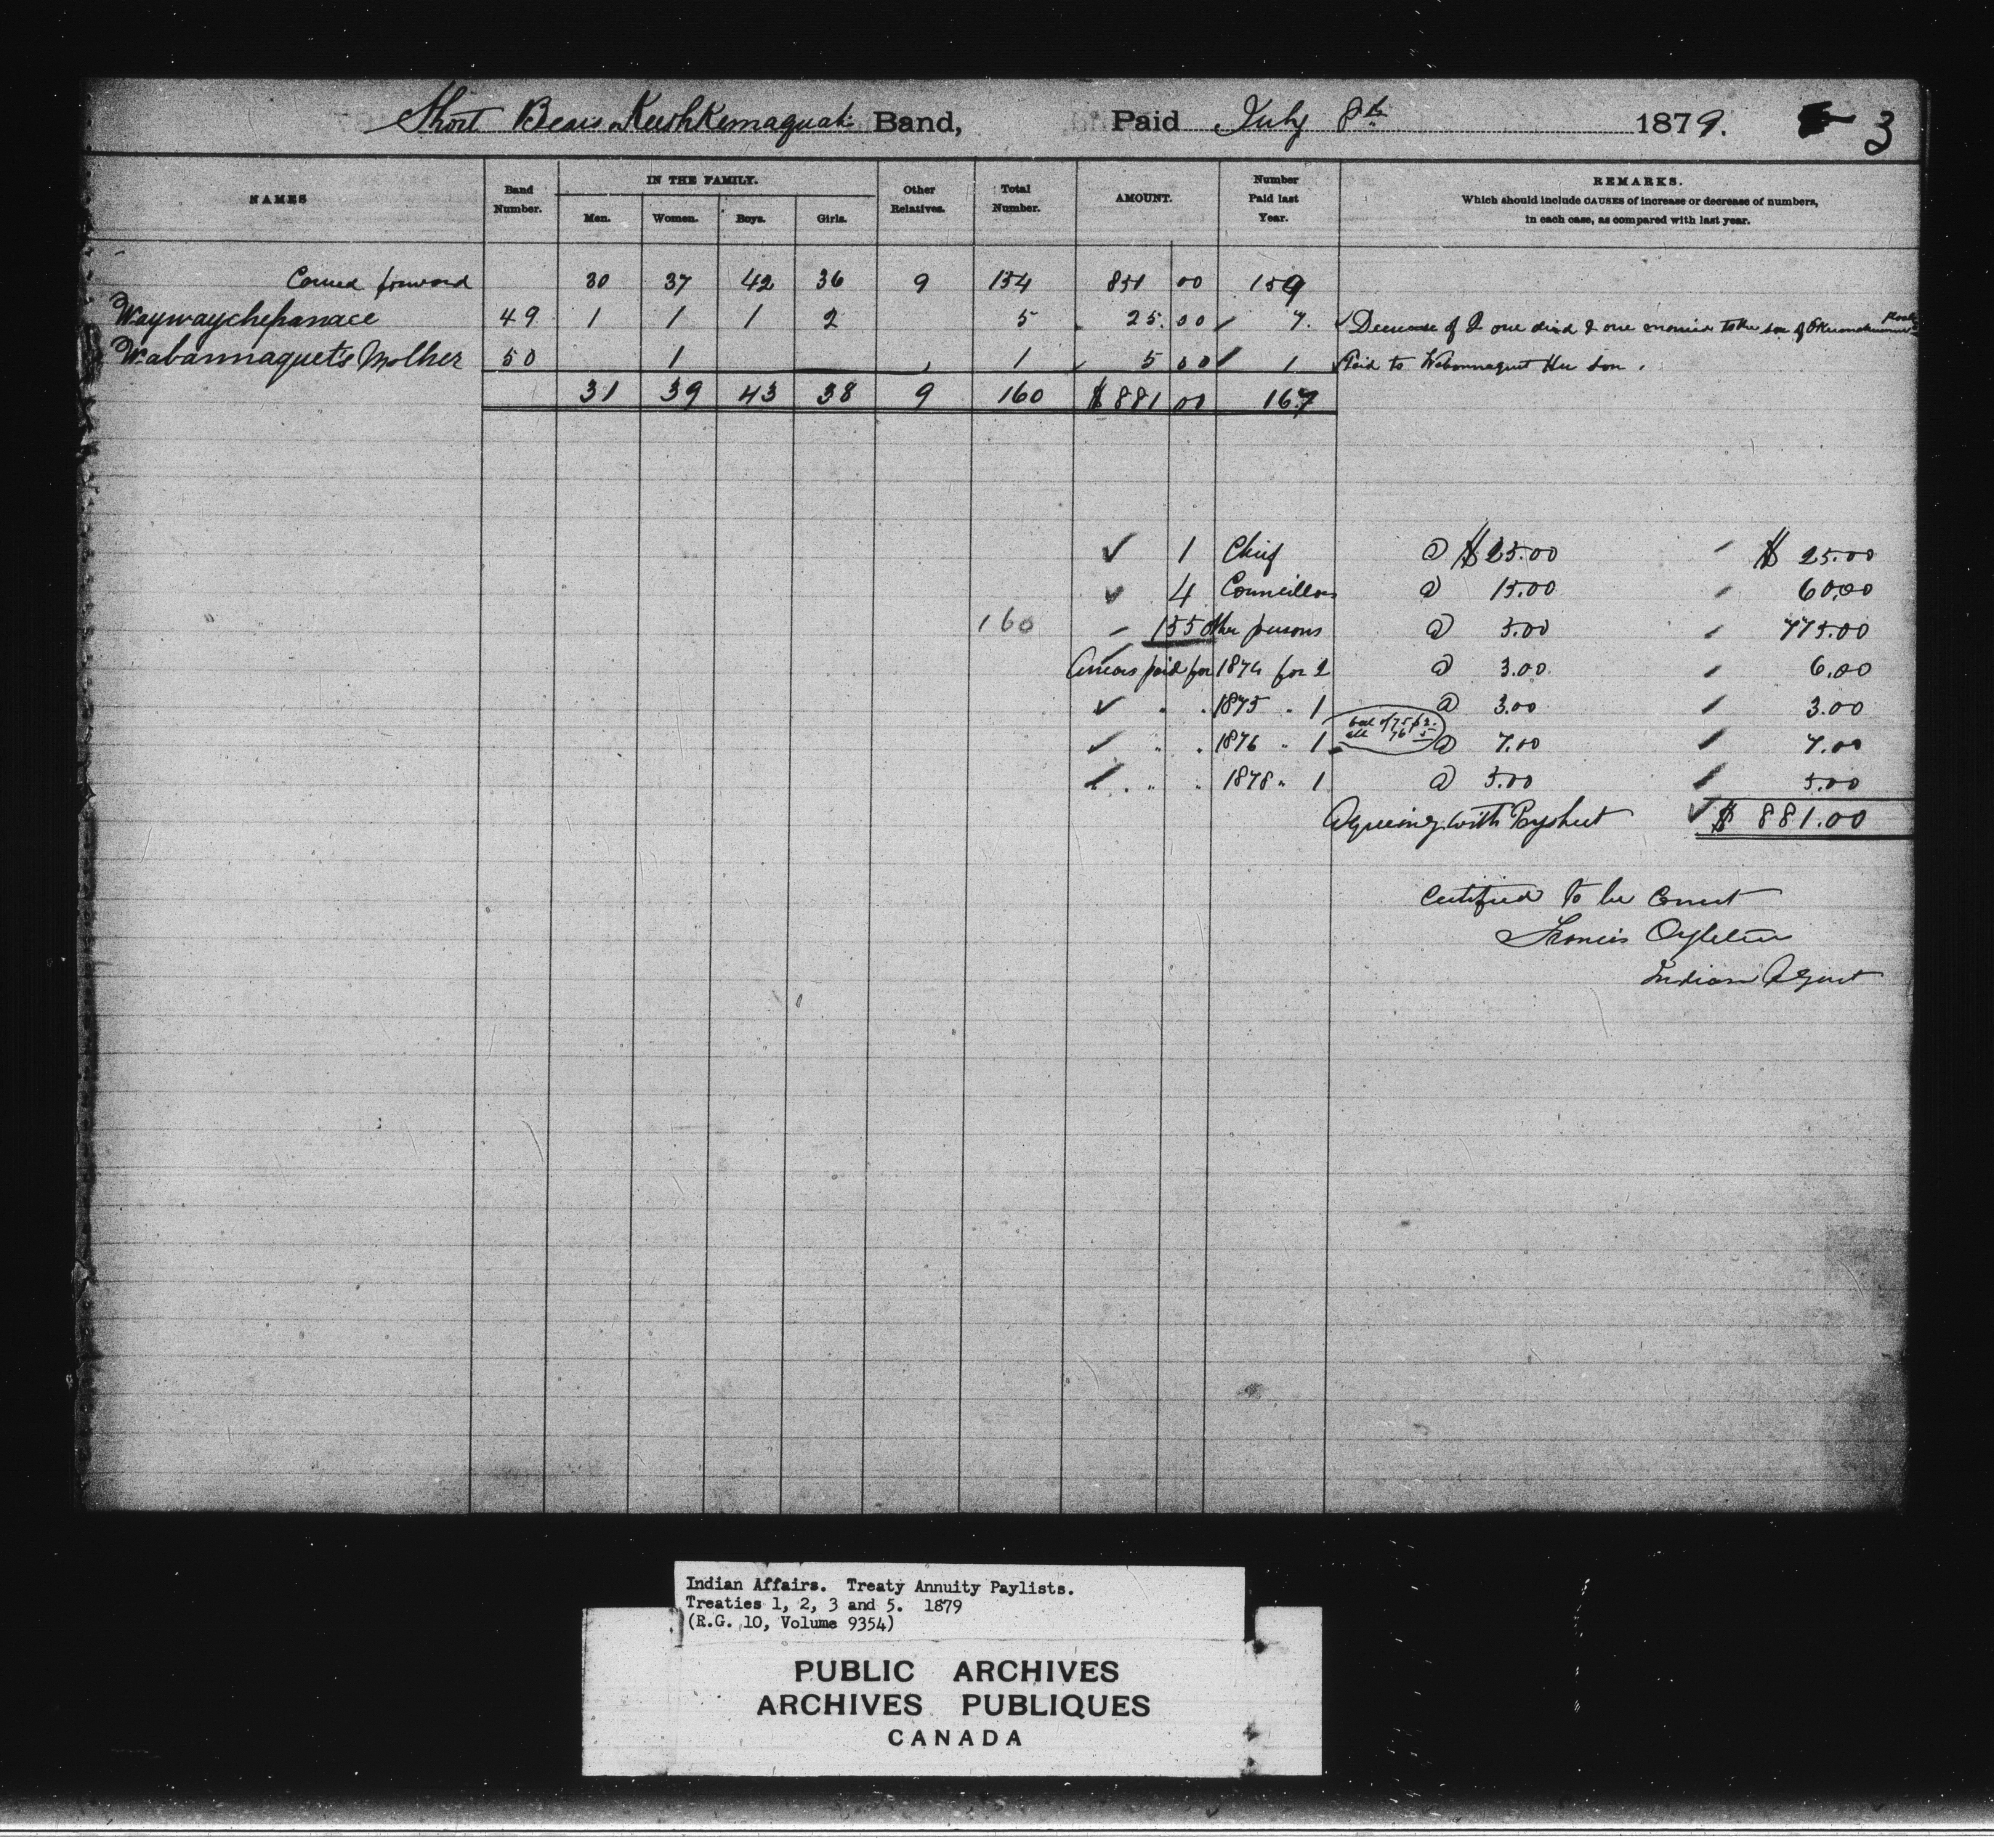 Short Bears or Keeshkemaquah Band, Paid July 8th 1879. 3
NAMES Band Number. IN THE FAMILY. Men. Women. Boys. Girls. Other Relatives. Total Number. AMOUNT. Number Paid last Year. REMARKS. Which should include CAUSES of increase or decrease of numbers, in each case, as compared with last year.
Carried forward 30 37 42 36 9 154 851 00 159
Waywaychepanace 49 1 1 1 2 5 25.00 7. Decrease of 2 one died & one married to the son of
Wabannaquet's Mother 50 1 1 5 00 1 Paid to Wabannaquet Her Son.
31 39 43 38 9 160 $881 00 167
1 Chief @ $25.00 $25.00
4 Councillors @ 15.00 60.00
160 155 other persons @ 5.00 775.00
Arrears paid for 1874 for 2 @ 3.00 6.00
" " 1875 " 1 @ 3.00 3.00
" " 1876 " 1 bal of 75 $2. all 76 5 @ 7.00 7.00
" " 1878 " 1 @ 5.00 5.00
Agreeing with Paysheet $881.00
Certified to be Correct
Francis Ogletree
Indian Agent
Indian Affairs. Treaty Annuity Paylists.
Treaties 1, 2, 3 and 5. 1879
(R.G. 10, Volume 9354)
PUBLIC ARCHIVES
ARCHIVES PUBLIQUES
CANADA